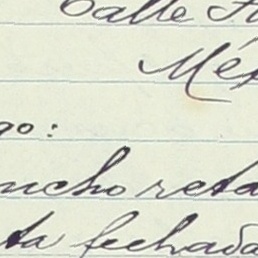 Calle
Méx
go:
ncho reta
ta fechada